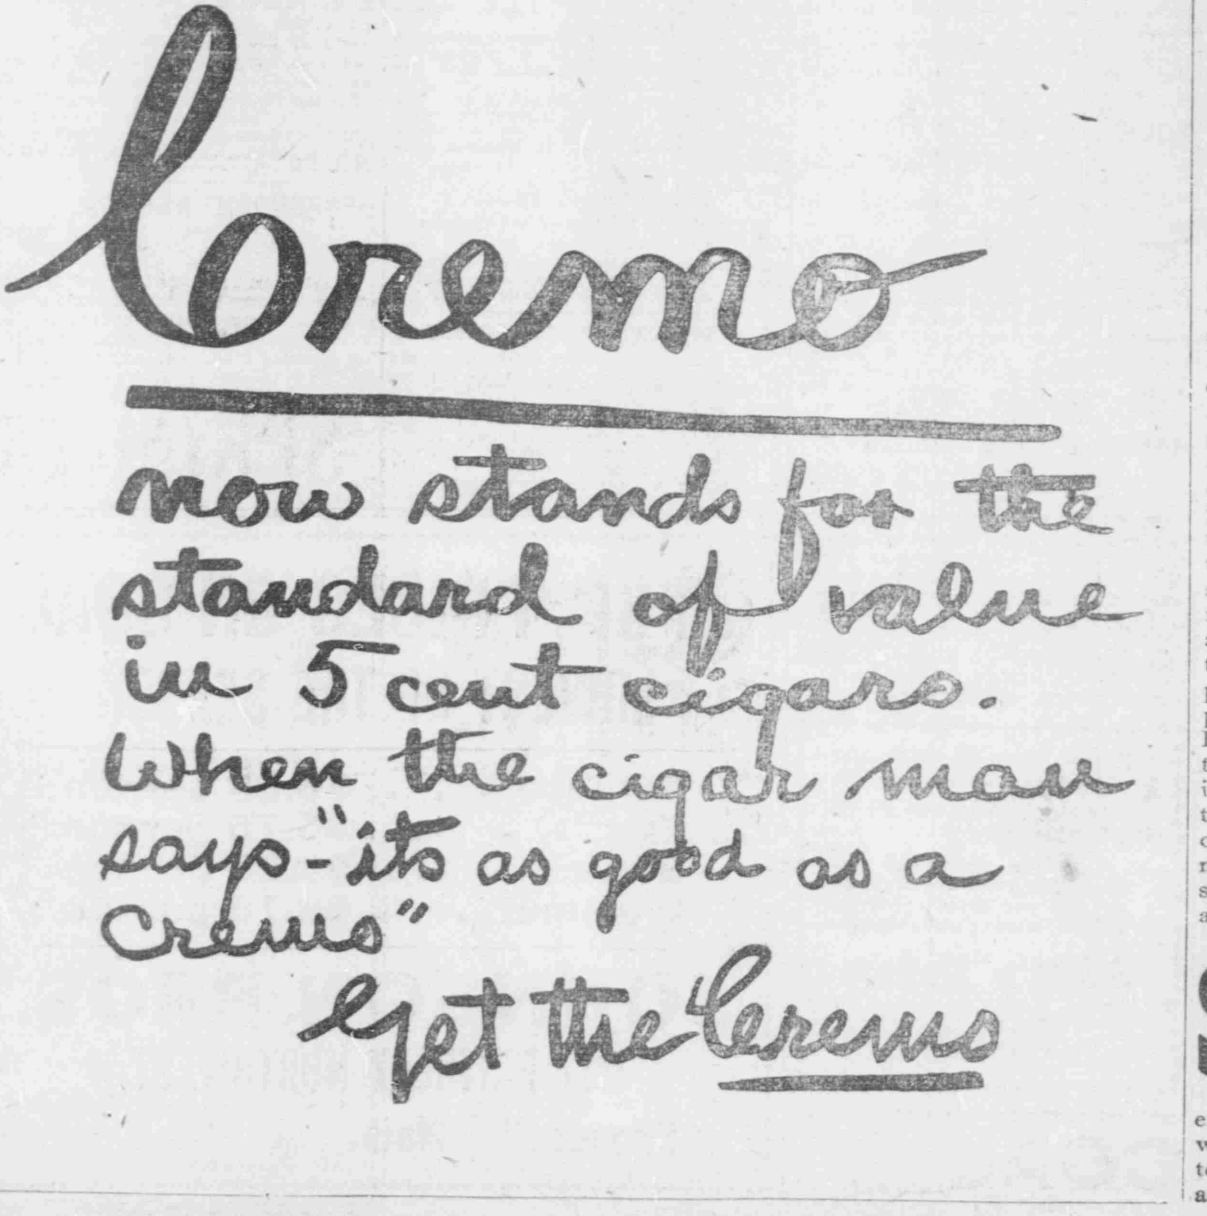 Cremo
now stands for the
standard of value
in 5 cent cigars.
When the cigar man
says-"its as good as a
Cremo"
Get the Cremo